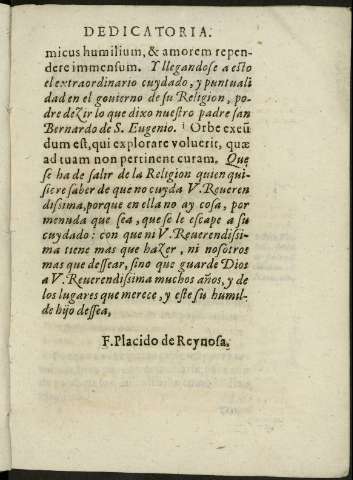 DEDICATORIA.
micus humilium, & amorem repen-
dere immensum. Y llegandose a esto
el extraordinario cuydado, y puntuali
dad en el gouierno de su Religion, po-
dre dezir lo que dixo nuestro padre san
Bernardo de S. Eugenio. Orbe exeũ
dum est, qui explorare voluerit, quæ
ad tuam non pertinent curam. Que
se ha de salir de la Religion quien qui-
siere saber de que no cuyda V. Reueren
dissima, porque en ella no ay cosa, por
menuda que sea, que se le escape a su
cuydado: con que ni V. Reuerendissi-
ma tiene mas que hazer, ni nosotros
mas que dessear, sino que guarde Dios
a V. Reuerendissima muchos años, y de
los lugares que merece, y este su humil-
de hijo dessea,
F. Placido de Reynosa,